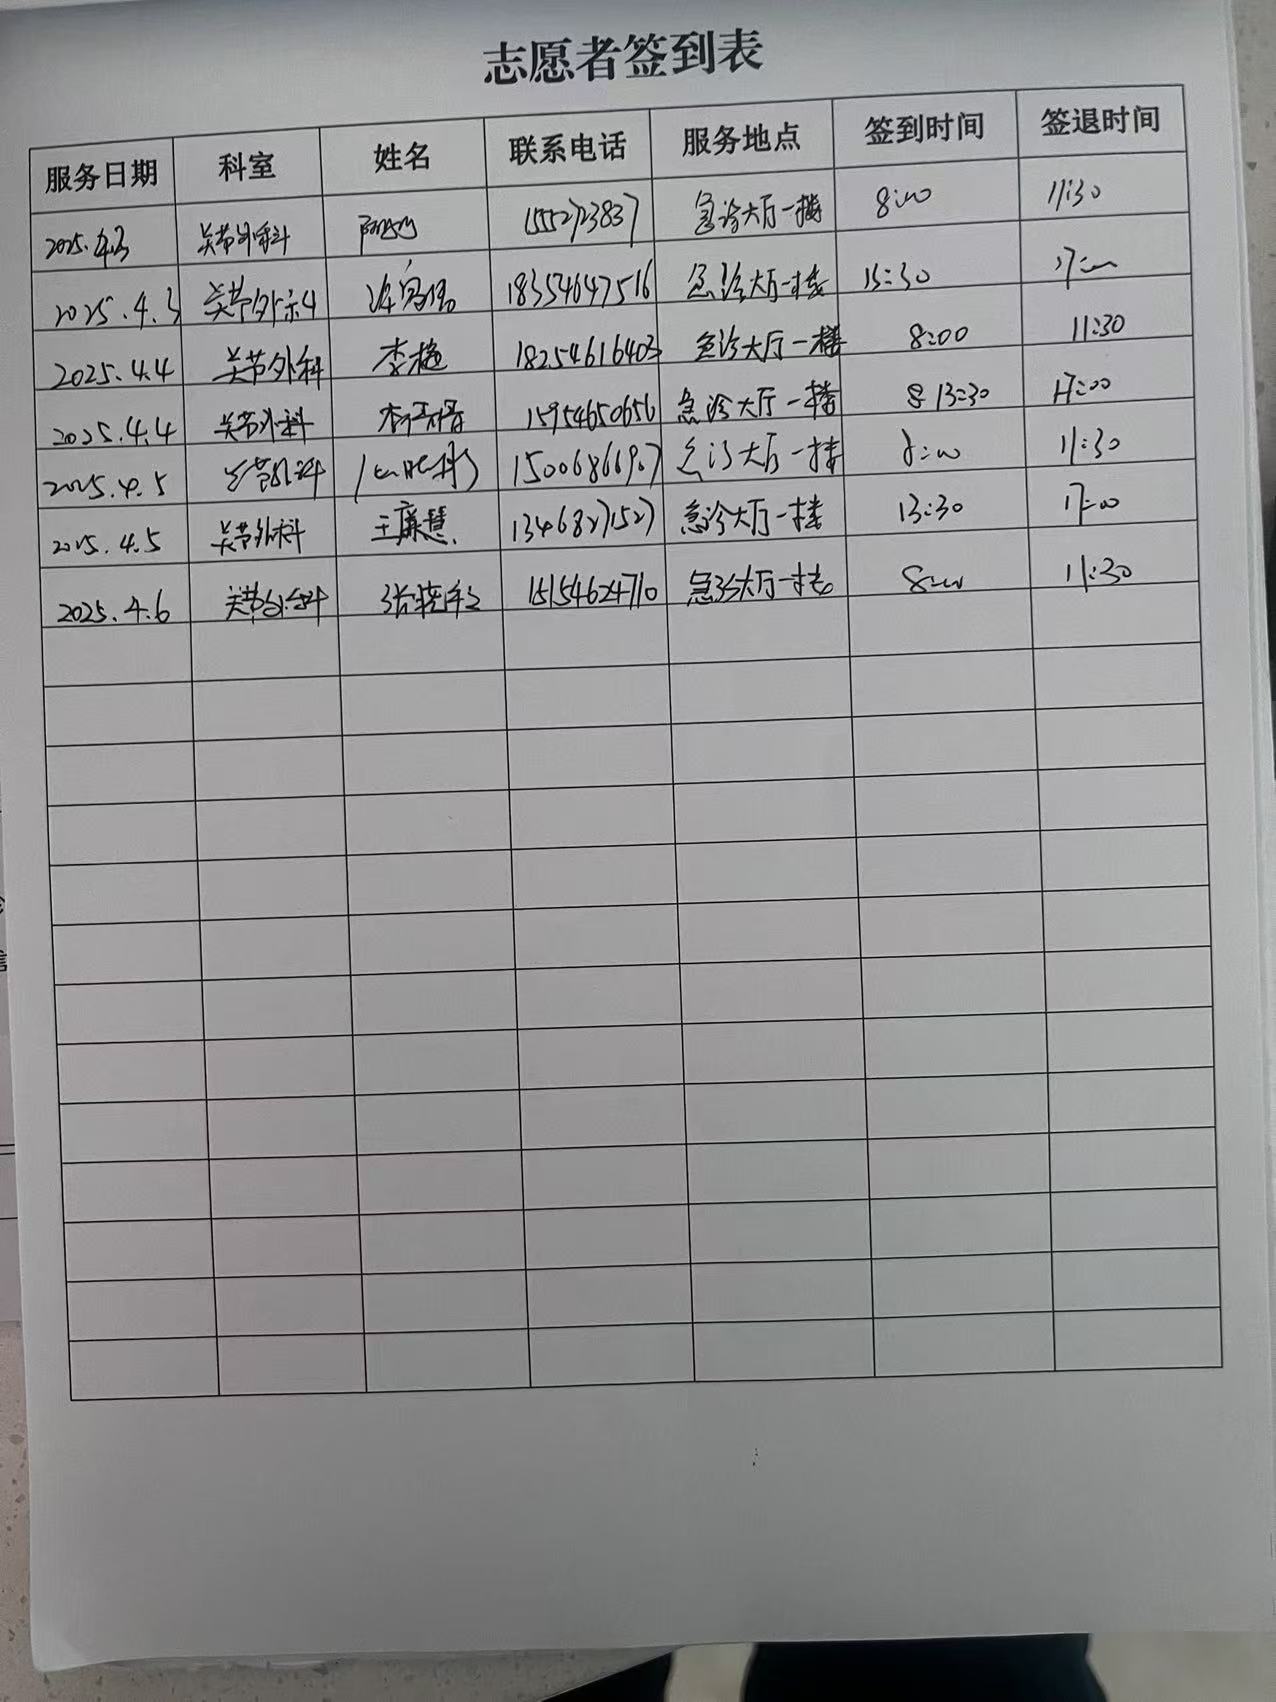 志愿者签到表
服务日期 科室 姓名 联系电话 服务地点 签到时间 签退时间
2025.4.3 关节外科 15552723837 急诊大厅一楼 8:00 11:30
2025.4.3 关节外科 18354647516 急诊大厅一楼 13:30 17:00
2025.4.4 关节外科 李艳 18254616403 急诊大厅一楼 8:00 11:30
2025.4.4 关节外科 15954650656 急诊大厅一楼 13:30 17:00
2025.4.5 关节外科 急诊大厅一楼 8:00 11:30
2025.4.5 关节外科 王廉慧 13468271527 急诊大厅一楼 13:30 17:00
2025.4.6 关节外科 15154624710 急诊大厅一楼 8:00 11:30